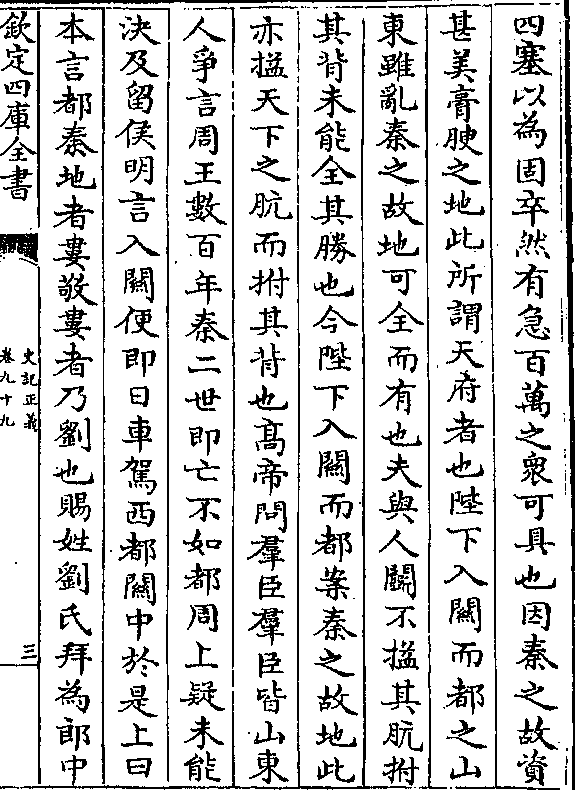 四塞以為固卒然有急百萬之衆可具也因秦之故資
甚美膏腴之地此所謂天府者也陛下入關而都之山
東雖亂秦之故地可全而有也夫與人鬬不搤其肮拊
其背未能全其勝也今陛下入關而都案秦之故地此
亦搤天下之肮而拊其背也髙帝問羣臣羣臣皆山東
人爭言周王數百年秦二世即亡不如都周上疑未能
決及留侯明言入關便即日車駕西都關中於是上曰
本言都秦地者婁敬婁者乃劉也賜姓劉氏拜為郎中
欽定四庫全書
史記正義
卷九十九
三